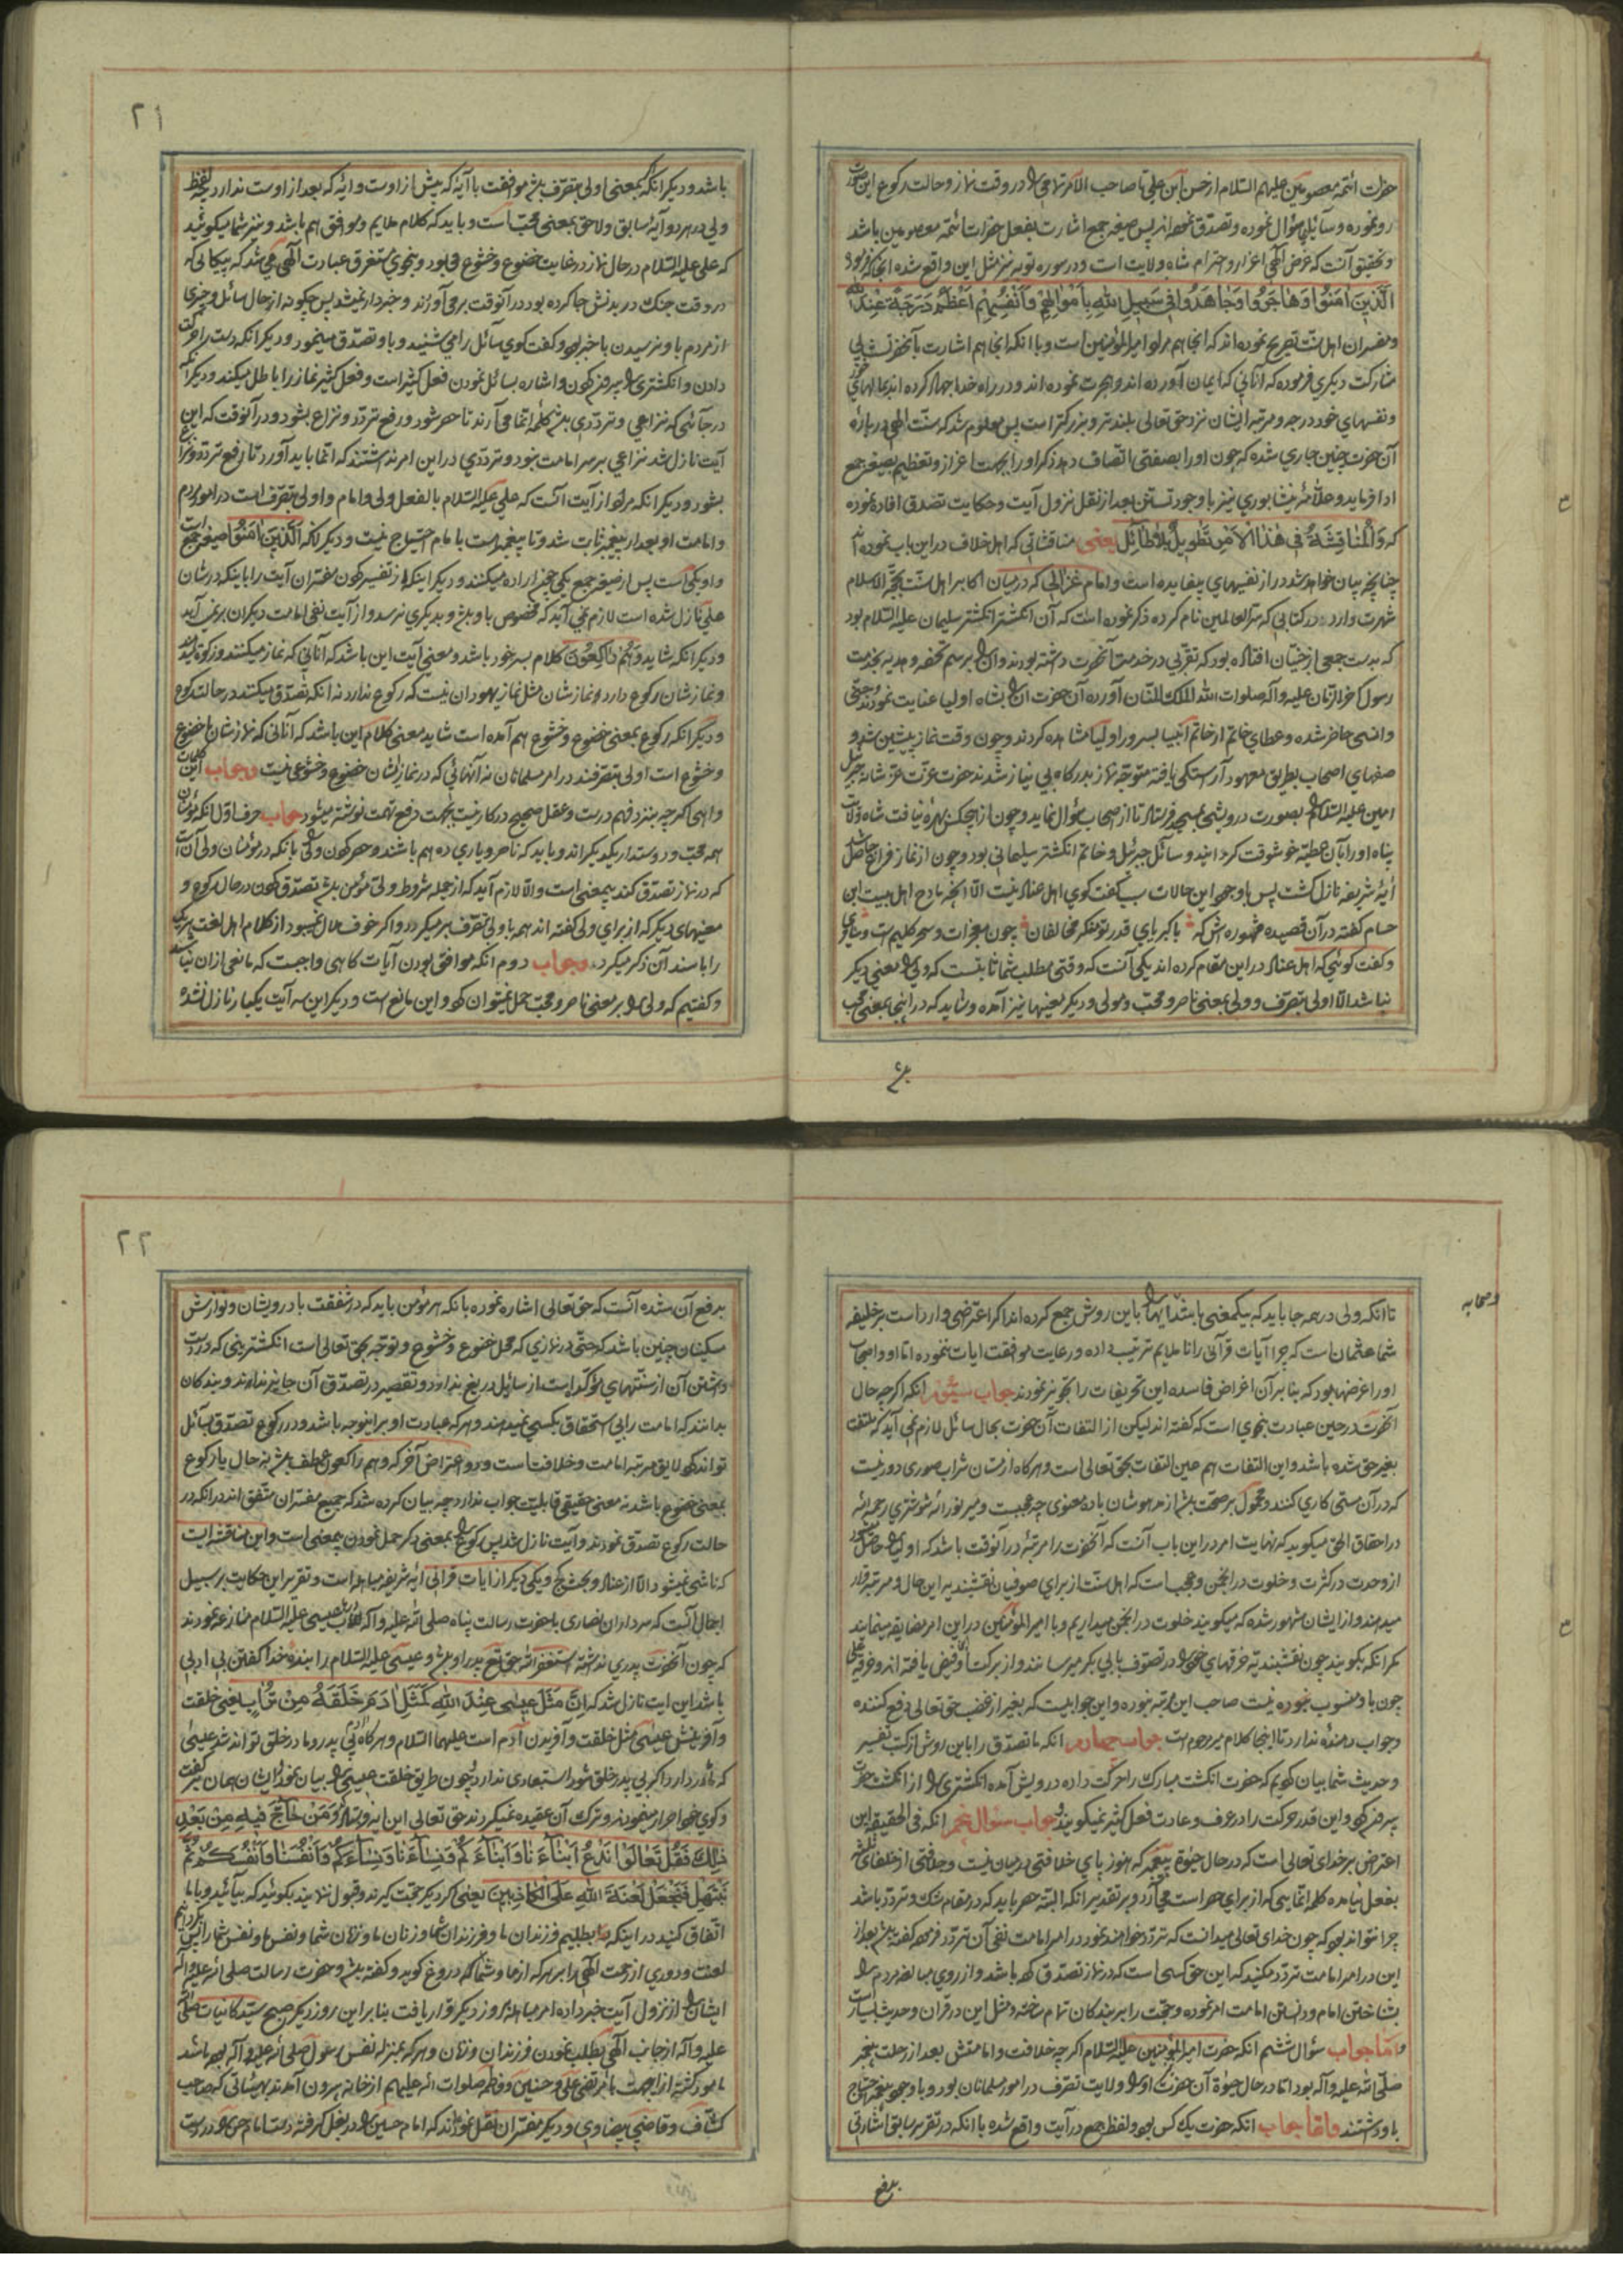 حضرات ائمه معصومین علیهم السلام از حسن ابن علی تا صاحب الامر تمامی را در وقت نماز و حالت رکوع این صورت
رو نموده و سائلی سؤال نموده و تصدق نموده اند پس صیغه جمع اشارت بفعل حضرات ائمه معصومین باشد
و تحقیق آنست که غرض الهی اعزاز و احترام شاه ولایت است و در سوره توبه نیز مثل این واقع شده آنجا که فرموده
الَّذِينَ اٰمَنُوا وَهَاجَرُوا وَجَاهَدُوا فِي سَبِيلِ اللهِ بِأَمْوَالِهِمْ وَأَنْفُسِهِمْ أَعْظَمُ دَرَجَةً عِنْدَ اللّٰه
و مفسران اهل سنت تصریح نموده اند که آنجا هم مراد امیرالمؤمنین است و با آنکه آنجا هم اشارت بآنحضرتست بی
مشارکت دیگری فرموده که آنانی که ایمان آورده اند و هجرت نموده اند و در راه خدا جهاد کرده اند بمالهای خود
و نفسهای خود درجه و مرتبه ایشان نزد حق تعالی بلندتر و بزرگتر است پس معلوم شد که سنت الهی درباره
آن حضرت چنین جاری شده که چون او را بصفتی اتصاف دهد ذکر او را بجهت اعزاز و تعظیم بصیغه جمع
ادا فرماید و علامه نیشابوری نیز با وجود تسنن بعد از نقل نزول آیت و حکایت تصدق افاده نموده
که وَالْمُنَاقَشَةُ فِي هٰذَا الْاَمْرِ تَطْوِيلٌ بِلَا طَائِلٍ یعنی مناقشاتی که اهل خلاف در این باب نموده اند
چنانچه بیان خواهد شد از نفسهای بیفایده است و امام غزالی که در میان اکابر اهل سنت بحجة الاسلام
شهرت دارد در کتابی که سرالعالمین نام کرده ذکر نموده است که آن انگشتر انگشتر سلیمان علیه السلام بود
که بدست جمعی از جنیان افتاده بود که تقربی در خدمت آنحضرت داشته بودند و آن را برسم تحفه و هدیه بخدمت
رسول آخرالزمان علیه و آله صلوات الله الملک المنان آورده آن حضرت آن را بشاه اولیا عنایت نمودند و جنی
و انسی حاضر شده و عطای خاتم از خاتم انبیا بسرور اولیا مشاهده کردند و چون وقت نماز پیشین شد و
صفهای اصحاب بطریق معهود آراستگی یافته متوجه نماز بدرگاه بی نیاز شدند حضرت عزت عز شانه جبرئیل
امین علیه السلام را بصورت درویشی بمسجد فرستاد تا از اصحاب سؤال نماید و چون از هیچکس بهره نیافت شاه ولایت
پناه او را بآن عطیه خوشوقت گردانید و سائل جبرئیل و خاتم انگشتر سلیمانی بود و چون از نماز فراغ حاصل شد
آیه شریفه نازل گشت پس با وجود این حالات سبب گفت گوی اهل عناد نیست الا آنچه مادح اهل بیت ابن
حسام گفته در آن قصیده مشهوره اش که با کبریای قدر تو مفکر مخالفان چون معجزات و سحر کلیم است و سامری
و گفت گوئی که اهل عناد در این مقام کرده اند یکی آنست که وقتی مطلب شما ثابتست که ولی را معنی دیگر
نباشد الا اولی بتصرف و ولی بمعنی ناصر و محب و مولی و دیگر معنیها نیز آمده و شاید که در اینجا بمعنی محب
باشد
۲۱
باشد و دیگر آنکه بمعنی اولی بتصرف باشد موافقت با آیه که پیش از اوست و آیه که بعد از اوست ندارد چه لفظ
ولی در هر دو آیه سابق و لاحق بمعنی محب است و باید که کلام ملایم و موافق هم باشد و نیز شما میگوئید
که علی علیه السلام در حال نماز در غایت خضوع و خشوع می بود و بنحوی مستغرق عبادت الهی می شد که پیکانی که
در وقت جنگ در بدنش جا کرده بود در آنوقت برمی آوردند و خبردار نمیشد پس چگونه از حال سائل و چیزی
از مردم باو نرسیدن باخبر بود و گفت گوی سائل را می شنید و باو تصدق مینمود و دیگر آنکه دست را حرکت
دادن و انگشتری را بیرون کردن و اشاره بسائل نمودن فعل کثیر است و فعل کثیر نماز را باطل میکند و دیگر آنکه
در جائی که نزاعی و ترددی باشد کلمه انما می آرند تا حصر شود و رفع تردد و نزاع بشود و در آنوقت که این
آیت نازل شد نزاعی بر سر امامت نبود و ترددی در این امر نداشتند که انما باید آورد تا رفع تردد و نزاع
بشود و دیگر آنکه مراد از آیت آنست که علی علیه السلام بالفعل ولی و امام و اولی بتصرف است در امور مردم
و امامت او بعد از پیغمبر ثابت شد و تا پیغمبر هست با امام احتیاج نیست و دیگر آنکه اَلَّذِينَ اٰمَنُوا صیغه جمع است
و او یکی است پس از صیغه جمع یکی چون اراده میکنند و دیگر اینکه از تفسیر کردن مفسران آیت را باینکه در شان
علی نازل شده است لازم نمی آید که مخصوص باو باشد و بدیگری نرسد و از آیت نفی امامت دیگران بر نمی آید
و دیگر آنکه شاید وَهُمْ رَاكِعُونَ کلام بسر خود باشد و معنی آیت این باشد که آنانی که نماز میکنند و زکوة میدهند
و نمازشان رکوع دارد و نمازشان مثل نماز یهودان نیست که رکوع ندارد نه آنکه تصدق میکنند در حالت رکوع
و دیگر آنکه رکوع بمعنی خضوع و خشوع هم آمده است شاید معنی کلام این باشد که آنانی که نمازشان با خضوع
و خشوع است اولی بتصرفند در امر مسلمانان نه آنهائی که در نماز ایشان خضوع و خشوعی نیست و جواب این کلمات
واهی اگرچه بنزد فهم درست و عقل صحیح در کار نیست بجهت دفع تهمت نوشته میشود جواب حرف اول آنکه مؤمنان
همه محب و دوستدار یکدیگراند و باید که ناصر و یاری ده هم باشند و حصر کردن ولی را بآنکه در مؤمنان ولی آن است
که در نماز تصدق کند بیمعنی است والا لازم آید که از جمله شروط ولی مؤمن باشد تصدق کردن در حال رکوع و
معنیهای دیگر که از برای ولی گفته اند همه باولی بتصرف بر میگردد و اگر خوف ملال نمیبود از کلام اهل لغت هر یک
را با سند آن ذکر میکردم و جواب دوم آنکه موافق بودن آیات گاهی واجبست که مانعی از آن نباشد
و گفتیم که ولی را بر معنی ناصر و محب حمل نمیتوان کرد و این مانع است و دیگر این سه آیت یکبار نازل نشده
و صحابه
تا آنکه ولی در همه جا باید که بیکمعنی باشد اینها را باین روش جمع کرده اند اگر اعتراضی وارد است بر خلیفه
شما عثمان است که چرا آیات قرآنی را ناملایم ترتیب داده و رعایت موافقت آیات ننموده اما او و اصحاب
او را غرضها بود که بنابر آن اغراض فاسده این تحریفات را تجویز نمودند جواب سیّم آنکه اگرچه حال
آنحضرت در حین عبادت بنحوی است که گفته اند لیکن از التفات آن حضرت بحال سائل لازم نمی آید که ملتفت
بغیر حق شده باشد و این التفات هم عین التفات بحق تعالی است و هرگاه از مستان شراب صوری دور نیست
که در آن مستی کاری کنند و محمول بر صحت باشد از مدهوشان باده معنوی چه عجبست و میر نورالله شوشتری رحمه الله
در احقاق الحق میگوید که نهایت امر در این باب آنست که آنحضرت را مرتبه در آنوقت باشد که اولیا را حاصل میشود
از وحدت در کثرت و خلوت در انجمن و عجب است که اهل سنت از برای صوفیان نقشبندیه این حال و مرتبه قرار
میدهند و از ایشان مشهور شده که میگویند خلوت در انجمن میداریم و با امیر المؤمنین در این امر مضایقه مینمایند
مگر آنکه بگویند چون نقشبندیه خرقهای خود را در تصوف بابی بکر میرسانند و از برکت او فیض یافته اند و خرقه علی
چون باو منسوب نبوده نیست صاحب این مرتبه نبوده و این جوابیست که بغیر از غضب حق تعالی دفع کننده
و جواب دهنده ندارد تا اینجا کلام میر مرحوم است جواب چهارم آنکه ما تصدق را باین روش از کتب تفسیر
و حدیث شما بیان کردیم که حضرت انگشت مبارک را حرکت داده درویش آمده انگشتری را از انگشت حضرت
بیرون کرد و این قدر حرکت را در عرف و عادت فعل کثیر نمیگویند و جواب سؤال پنجم آنکه فی الحقیقه این
اعتراض بر خدای تعالی است که در حال حیوة پیغمبر که هنوز پای خلافتی در میان نیست و خلافتی از خلفای ثلثه
بفعل نیامده کلمه انما یی که از برای حصر است می آرد و بر تقدیر آنکه البته حصر باید که در مقام شک و تردد باشد
چرا نتواند بود که چون خدای تعالی میدانست که تردد خواهند نمود در امر امامت نفی آن تردد فرموده گفته باشد بعد از
این در امر امامت تردد مکنید که این حق کسی است که در نماز تصدق کرده باشد و از روی مبالغه مردم را
بشناختن امام و دانستن امامت امر نموده و حجت را بر بندگان تمام ساخته و مثل این در قران و حدیث بسیار است
و اما جواب سؤال ششم آنکه حضرت امیر المؤمنین علیه السلام اگرچه خلافت و امامتش بعد از رحلت پیغمبر
صلی الله علیه و آله بود اما در حال حیوة آن حضرت او را ولایت تصرف در امور مسلمانان بود و با وجود پیغمبر احتیاج
باو داشتند و اما جواب آنکه حضرت یک کس بود و لفظ جمع در آیت واقع شده با آنکه در تقریر سابق اشارتی
برفع
۲۲
برفع آن شده آنست که حق تعالی اشاره نموده بآنکه هر مؤمن باید که در شفقت با درویشان و نوازش
مسکینان چنین باشد که حتی در نمازی که محل خضوع و خشوع و توجه بحق تعالی است انگشتر یعنی که در دست
داشتن آن از سنتهای مؤکد است از سائل دریغ ندارد و تقصیر در تصدق آن جایز نداند و بندگان
بدانند که امامت را بی استحقاق بکسی نمیدهند و هر که عبادت او براینوجه باشد و در رکوع تصدق بسائل
تواند کرد لایق مرتبه امامت و خلافت است و دو اعتراض آخر که و هم راکعون عطف باشد نه حال یا رکوع
بمعنی خضوع باشد نه معنی حقیقی قابلیت جواب ندارد چه بیان کرده شد که جمیع مفسران متفق اند در آنکه در
حالت رکوع تصدق نمودند و آیت نازل شد پس رکوع را بمعنی دیگر حمل نمودن بیمعنی است و این مناقشه ایست
که ناشی نمیشود الا از عناد و بحث کج و یکی دیگر از آیات قرآنی آیه شریفه مباهله است و تقریر این حکایت بر سبیل
اجمال آنست که سرداران نصاری با حضرت رسالت پناه صلی الله علیه و آله در باب عیسی علیه السلام منازعه نمودند
که چون آنحضرت پدری نداشته استغفرالله حق تع پدر او باشد و عیسی علیه السلام را بنده خدا گفتن بی ادبی
باشد این آیت نازل شد که اِنَّ مَثَلَ عِيسٰى عِنْدَ اللهِ كَمَثَلِ اٰدَمَ خَلَقَهُ مِنْ تُرَابٍ یعنی خلقت
و آفرینش عیسی مثل خلقت و آفریدن آدم است علیهما السلام و هرگاه آدم بی پدر و مادر خلق تواند شد عیسی
که مادر دارد اگر بی پدر خلق شود استبعادی ندارد چون طریق خلقت عیسی را بیان نمود ایشان همان گفت
و گوی خود اصرار مینمودند و ترک آن عقیده نمیکردند حق تعالی این آیه فرستاد وَمَنْ حَاجَّكَ فِيهِ مِنْ بَعْدِ
ذٰلِكَ فَقُلْ تَعَالَوْا نَدْعُ اَبْنَاءَنَا وَاَبْنَاءَكُمْ وَنِسَاءَنَا وَنِسَاءَكُمْ وَاَنْفُسَنَا وَاَنْفُسَكُمْ ثُمَّ
نَبْتَهِلْ فَنَجْعَلْ لَعْنَةَ اللهِ عَلَى الْكَاذِبِينَ یعنی اگر دیگر حجت گیرند و قبول ننمایند بگوئید که بیائید و با ما
اتفاق کنید در اینکه ما بطلبیم فرزندان ما و فرزندان شما و زنان ما و زنان شما و نفس ما و نفس شما را پس بگردانیم
لعنت و دوری از رحمت الهی را بر هر که از ما و شما که دروغ گوید و گفته باشد و حضرت رسالت صلی الله علیه و آله
ایشان را از نزول آیت خبر داده امر مباهله بروز دیگر قرار یافت بنابر این روز دیگر صبح سید کاینات صلی الله
علیه و آله از جانب الهی بطلب نمودن فرزندان و زنان و هر که بمنزله نفس رسول صلی الله علیه و آله بوده باشد
مامور گشته از آنجهت با مرتضی علی و حسنین و فاطمه صلوات الله علیهم از خانه بیرون آمدند بهیئتی که صاحب
کشّاف و قاضی بیضاوی و دیگر مفسران نقل نموده اند که امام حسین را در بغل گرفته دست امام حسن را در دست